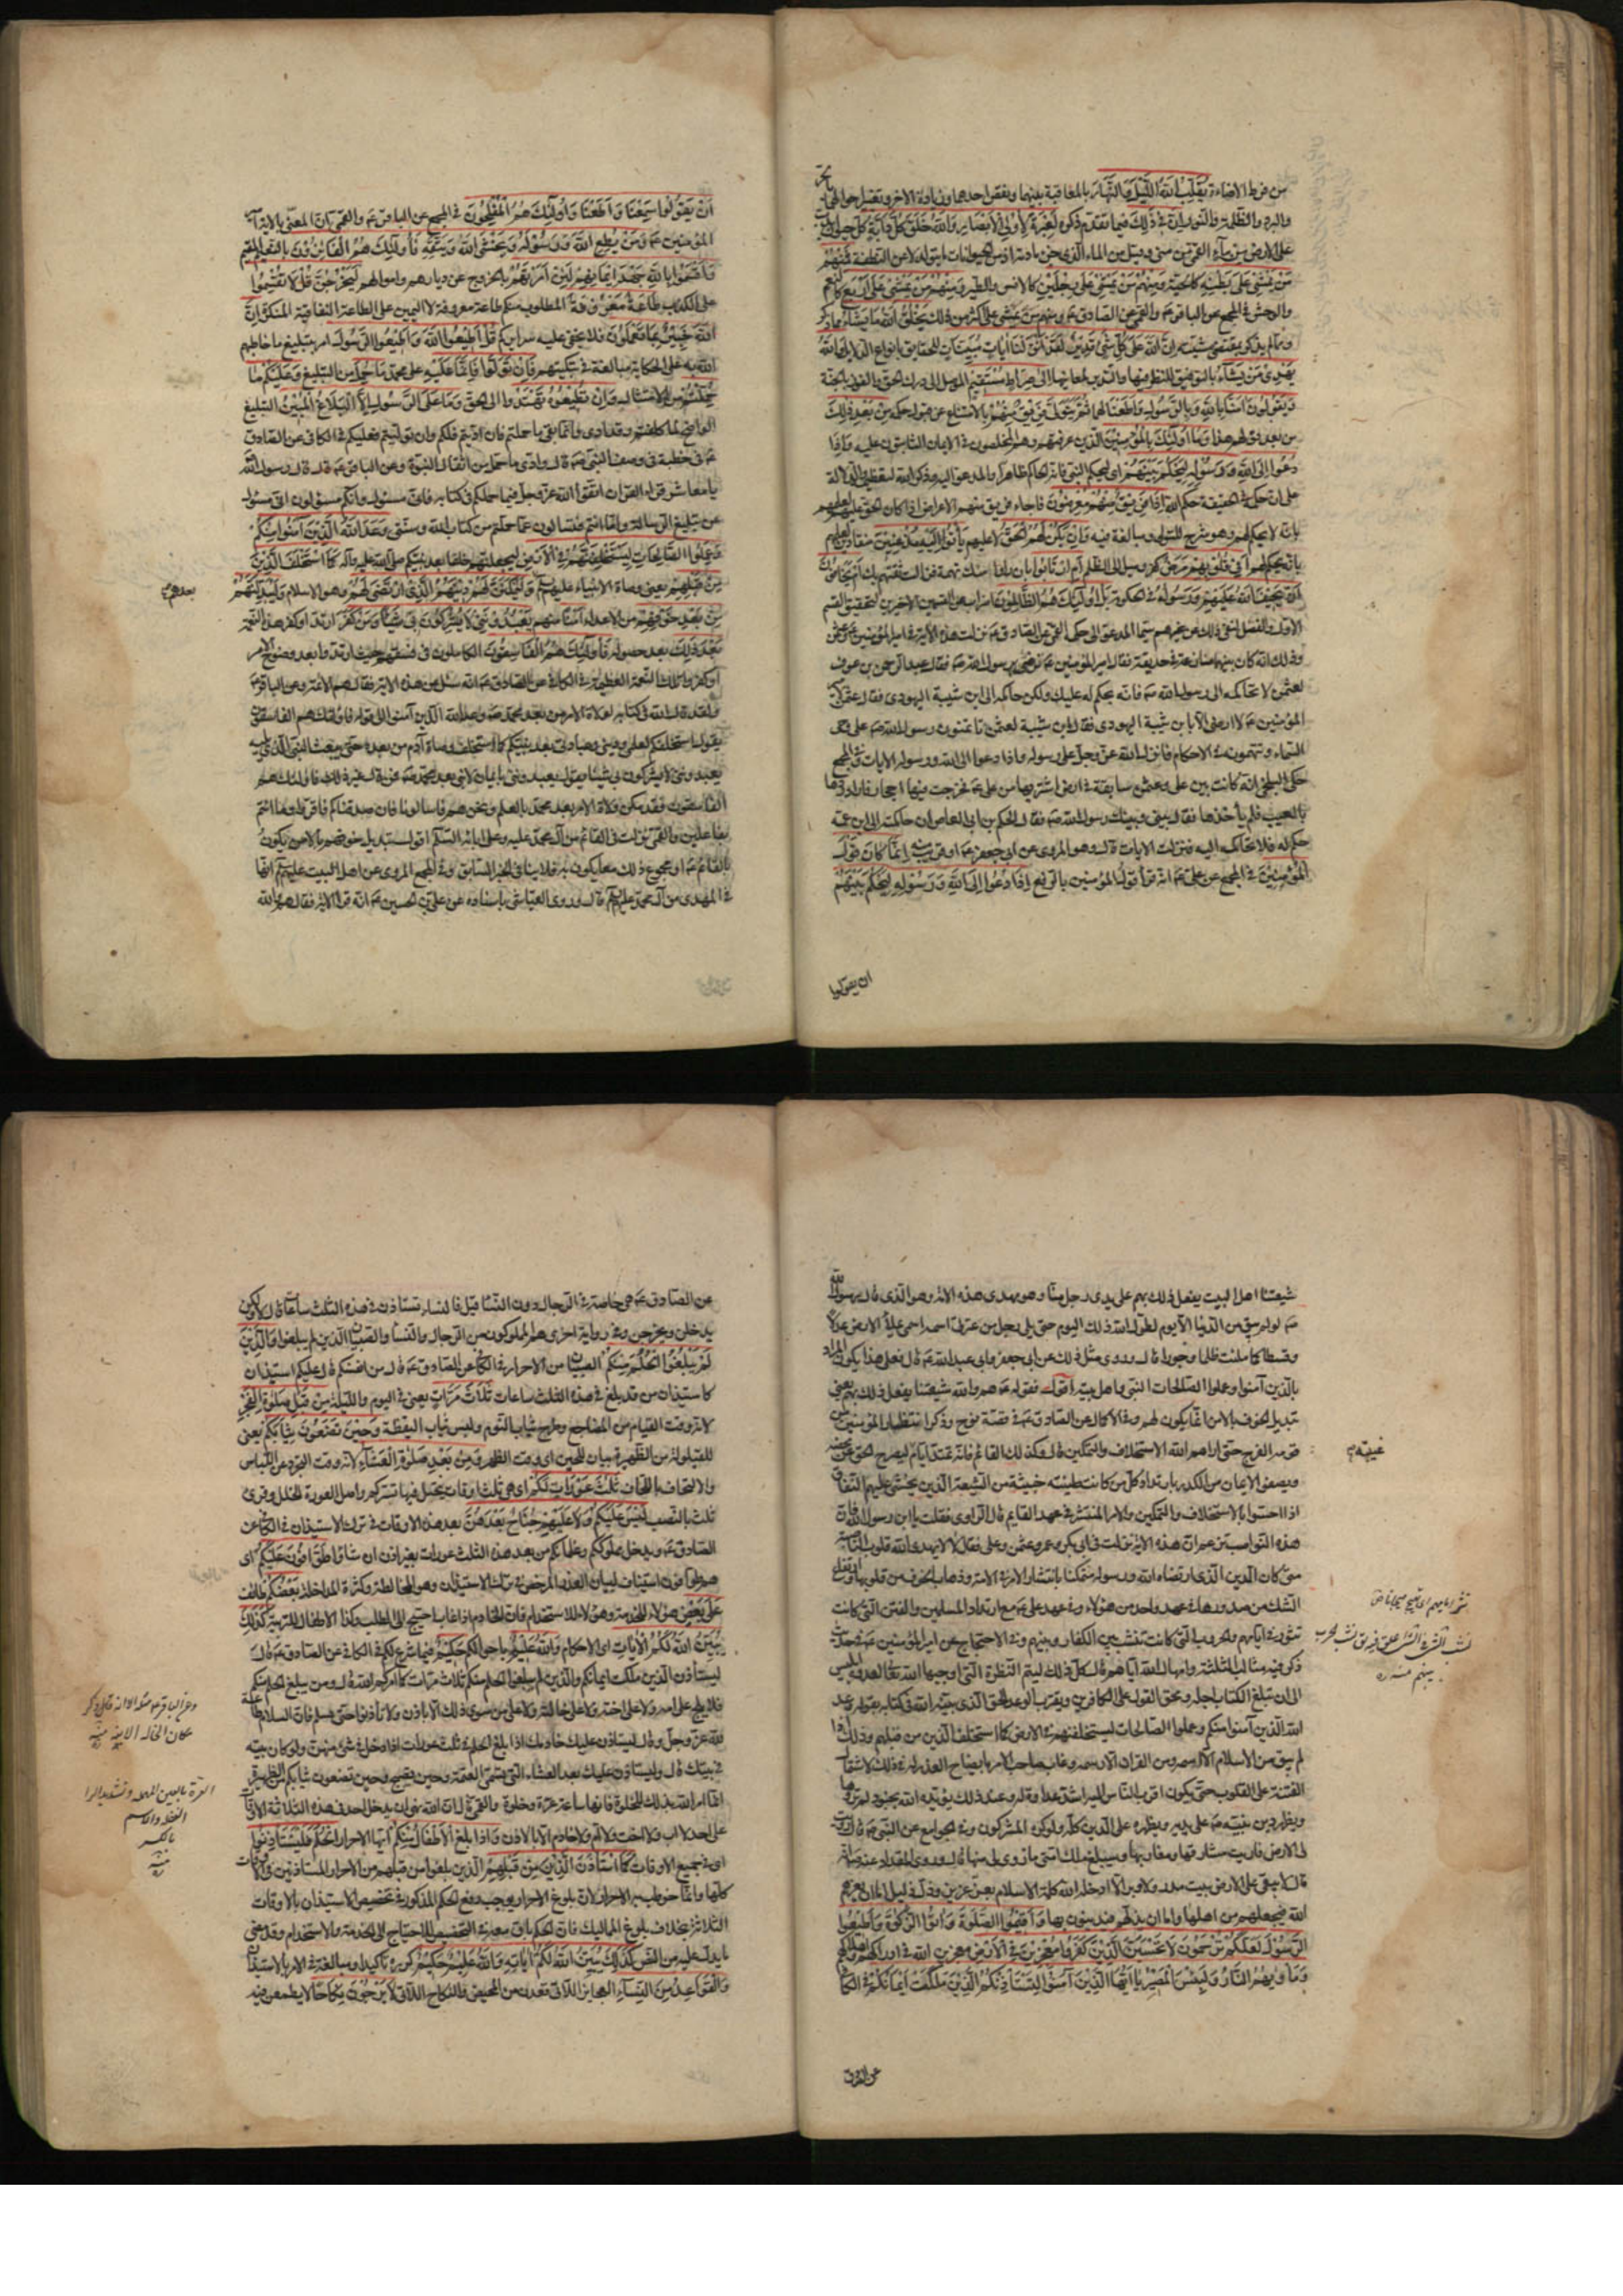 من فرط الاضاءة يُقَلِّبُ اللهُ اللَّيْلَ وَالنَّهَارَ بالمعاقبة بينهما ونقص احدهما وزيادة الاخر وتغيير احوالهما بالحر
والبرد والظلمة والنور اِنَّ في ذٰلِكَ فيما تقدم ذكره لَعِبْرَةً لِاُولِي الْاَبْصَارِ وَاللهُ خَلَقَ كُلَّ دَابَّةٍ كل حيوان يدب
على الارض مِنْ مَاءٍ القمي من مني وقيل من الماء الذي جزء مادته اذ من الحيوانات ما يتولد لا عن النطفة فَمِنْهُمْ
مَنْ يَمْشِي عَلَى بَطْنِهِ كالحية وَمِنْهُمْ مَنْ يَمْشِي عَلَى رِجْلَيْنِ كالانس والطير وَمِنْهُمْ مَنْ يَمْشِي عَلَى اَرْبَعٍ كالنعم
والوحش في المجمع عن الباقر ع والقمي عن الصادق ع ومنهم من يمشي على اكثر من ذلك يَخْلُقُ اللهُ مَا يَشَاءُ مما ذكر
ومما لم يذكر بمقتضى مشيته اِنَّ اللهَ عَلَى كُلِّ شَيْءٍ قَدِيرٌ لَقَدْ اَنْزَلْنَا اٰيَاتٍ مُبَيِّنَاتٍ للحقايق بانواع الدلايل وَاللهُ
يَهْدِي مَنْ يَشَاءُ بالتوفيق للنظر فيها والتدبر لمعانيها اِلَى صِرَاطٍ مُسْتَقِيمٍ الموصل الى درك الحق والفوز بالجنة
وَيَقُولُونَ اٰمَنَّا بِاللهِ وَبِالرَّسُولِ وَاَطَعْنَا لهما ثُمَّ يَتَوَلَّى فَرِيقٌ مِنْهُمْ بالامتناع عن قبول حكمه مِنْ بَعْدِ ذٰلِكَ
من بعد قولهم هذا وَمَا اُولٰئِكَ بِالْمُؤْمِنِينَ الذين عرفتهم وهم المخلصون في الايمان الثابتون عليه وَاِذَا
دُعُوا اِلَى اللهِ وَرَسُولِهِ لِيَحْكُمَ بَيْنَهُمْ اي ليحكم النبي فانه الحاكم ظاهرا والمدعو اليه وذكر الله لتعظيمه والدلالة
على ان حكمه في الحقيقة حكم الله اِذَا فَرِيقٌ مِنْهُمْ مُعْرِضُونَ فاجاء فريق منهم الاعراض اذا كان الحق عليهم لعلمهم
بانه لا يحكم لهم وهو شرح للتولي ومبالغة فيه وَاِنْ يَكُنْ لَهُمُ الْحَقُّ لا عليهم يَأْتُوا اِلَيْهِ مُذْعِنِينَ منقادين لعلمهم
بانه يحكم لهم اَفِي قُلُوبِهِمْ مَرَضٌ كفر وميل الى الظلم اَمِ ارْتَابُوا بان راوا منك تهمة فزالت ثقتهم بك اَمْ يَخَافُونَ
اَنْ يَحِيفَ اللهُ عَلَيْهِمْ وَرَسُولُهُ في الحكومة بَلْ اُولٰئِكَ هُمُ الظَّالِمُونَ اضراب عن القسمين الاخيرين لتحقيق القسم
الاول والفصل لنفي ذلك عن غيرهم سيما المدعو الى حكمه القمي عن الصادق ع نزلت هذه الاية في امير المؤمنين ع وعثمن
وذلك انه كان بينهما منازعة في حديقة فقال امير المؤمنين ع نرضى برسول الله ص فقال عبد الرحمن بن عوف
لعثمن لا تحاكمه الى رسول الله ص فانه يحكم له عليك ولكن حاكمه الى ابن شيبة اليهودي فقال عثمن لامير
المؤمنين ع لا ارضى الا بابن شيبة اليهودي فقال ابن شيبة لعثمن تاتمنون رسول الله ص على وحي
السماء وتتهمونه في الاحكام فانزل الله عز وجل على رسوله واذا دعوا الى الله ورسوله الايات وفي المجمع
حكى البلخي انه كانت بين علي وعثمن منازعة في ارض اشتريها من علي ع فخرجت فيها احجار فاراد ردها
بالعيب فلم ياخذها فقال بيني وبينك رسول الله ص فقال الحكم بن ابي العاص ان حاكمته الى ابن عمه
حكم له فلا تحاكمه اليه فنزلت الايات قال وهو المروي عن ابي جعفر ع او قريب منه اِنَّمَا كَانَ قَوْلَ
الْمُؤْمِنِينَ في المجمع عن علي ع انه قرأ قول المؤمنين بالرفع اِذَا دُعُوا اِلَى اللهِ وَرَسُولِهِ لِيَحْكُمَ بَيْنَهُمْ
ان يقولوا
اَنْ يَقُولُوا سَمِعْنَا وَاَطَعْنَا وَاُولٰئِكَ هُمُ الْمُفْلِحُونَ في المجمع عن الباقر ع والقمي ان المعني بالاية امير
المؤمنين ع وَمَنْ يُطِعِ اللهَ وَرَسُولَهُ وَيَخْشَى اللهَ وَيَتَّقْهِ فَاُولٰئِكَ هُمُ الْفَائِزُونَ بالنعيم المقيم
وَاَقْسَمُوا بِاللهِ جَهْدَ اَيْمَانِهِمْ لَئِنْ اَمَرْتَهُمْ بالخروج عن ديارهم واموالهم لَيَخْرُجُنَّ قُلْ لَا تُقْسِمُوا
على الكذب طَاعَةٌ مَعْرُوفَةٌ المطلوب منكم طاعة معروفة لا اليمين على الطاعة النفاقية المنكرة اِنَّ
اللهَ خَبِيرٌ بِمَا تَعْمَلُونَ فلا يخفى عليه سرايركم قُلْ اَطِيعُوا اللهَ وَاَطِيعُوا الرَّسُولَ امر بتبليغ ما خاطبهم
الله به على الحكاية مبالغة في تبكيتهم فَاِنْ تَوَلَّوْا فَاِنَّمَا عَلَيْهِ على محمد مَا حُمِّلَ من التبليغ وَعَلَيْكُمْ مَا
حُمِّلْتُمْ من الامتثال وَاِنْ تُطِيعُوهُ تَهْتَدُوا الى الحق وَمَا عَلَى الرَّسُولِ اِلَّا الْبَلَاغُ الْمُبِينُ التبليغ
الواضح لما كلفتم وقد ادى وانما بقي ما حملتم فان اديتم فلكم وان توليتم فعليكم في الكافي عن الصادق
ع في خطبة في وصف النبي ص قال وادى ما حمل من اثقال النبوة وعن الباقر ع قال قال رسول الله
يا معاشر قراء القران اتقوا الله عز وجل فيما حملكم من كتابه فاني مسئول وانكم مسئولون اني مسئول
عن تبليغ الرسالة واما انتم فتسالون عما حملتم من كتاب الله وسنتي وَعَدَ اللهُ الَّذِينَ اٰمَنُوا مِنْكُمْ
وَعَمِلُوا الصَّالِحَاتِ لَيَسْتَخْلِفَنَّهُمْ فِي الْاَرْضِ ليجعلنهم خلفاء بعد نبيكم صلى الله عليه وآله كَمَا اسْتَخْلَفَ الَّذِينَ
مِنْ قَبْلِهِمْ يعني وصاة الانبياء عليهم السلم وَلَيُمَكِّنَنَّ لَهُمْ دِينَهُمُ الَّذِي ارْتَضَى لَهُمْ وهو الاسلام وَلَيُبَدِّلَنَّهُمْ
بعدهم
مِنْ بَعْدِ خَوْفِهِمْ من الاعداء اَمْنًا منهم يَعْبُدُونَنِي لَا يُشْرِكُونَ بِي شَيْئًا وَمَنْ كَفَرَ ارتد او كفر هذه النعمة
بَعْدَ ذٰلِكَ بعد حصوله فَاُولٰئِكَ هُمُ الْفَاسِقُونَ الكاملون في فسقهم حيث ارتدوا بعد وضوح الامر
او كفروا تلك النعمة العظيمة في الكافي عن الصادق ع انه سئل عن هذه الاية فقال هم الائمة وعن الباقر ع
ولقد قال الله في كتابه لولاة الامر من بعد محمد ص وعد الله الذين آمنوا الى قوله فاولئك هم الفاسقون
يقول استخلفكم لعلمي وديني وعبادتي بعد نبيكم كما استخلف وصاة آدم من بعده حتى يبعث النبي الذي يليه
يعبدونني لا يشركون بي شيئا يقول يعبدونني بايمان لا نبي بعد محمد ص فمن قال غير ذلك فاولئك هم
الفاسقون فقد مكن ولاة الامر بعد محمد بالعلم ونحن هم فاسالونا فان صدقناكم فاقروا وما انتم
بفاعلين والقمي نزلت في القائم من آل محمد عليه وعلى ابائه السلم اقول تبديل خوفهم بالامن يكون
بالقائم ع او مجموع ذلك معا يكون به فلا ينافي الخبر السابق وفي المجمع المروي عن اهل البيت عليهم السلم انها
في المهدي من آل محمد عليهم السلم قال وروى العياشي باسناده عن علي بن الحسين ع انه قرا الاية فقال هم والله
شيعتنا اهل البيت يفعل ذلك بهم على يدي رجل منا وهو مهدي هذه الامة وهو الذي قال رسول الله
ص لو لم يبق من الدنيا الا يوم لطول الله ذلك اليوم حتى يلي رجل من عترتي اسمه اسمي يملأ الارض عدلا
وقسطا كما ملئت ظلما وجورا قال وروي مثل ذلك عن ابي جعفر وابي عبد الله ع قال فعلى هذا يكون المراد
بالذين آمنوا وعملوا الصالحات النبي واهل بيته اقول فقوله ع هم والله شيعتنا يفعل ذلك بهم يعني
تبديل الخوف بالامن انما يكون لهم وفي الاكمال عن الصادق ع في قصة نوح وذكر انتظار المؤمنين من
قومه الفرج حتى اراهم الله الاستخلاف والتمكين قال وكذلك القائم فانه تمتد ايام ليصرح الحق عن محضه
غيبته
ويصفو الايمان من الكدر بارتداد كل من كانت طينته خبيثة من الشيعة الذين يخشى عليهم النفاق
اذا احسوا بالاستخلاف والتمكين والامر المنتشر في عهد القايم قال الراوي فقلت يا ابن رسول الله فان
هذه النواصب تزعم ان هذه الاية نزلت في ابي بكر وعمر وعثمن وعلي فقال لا لا يهدي الله قلوب الناصبة
متى كان الدين الذي ارتضاه الله ورسوله متمكنا بانتشار الامر في الامة وذهاب الخوف من قلوبها وارتفاع
الشك من صدورها في عهد واحد من هؤلاء وفي عهد علي ع مع ارتداد المسلمين والفتن التي كانت
تثور في ايامهم والحروب التي كانت تنشب بين الكفار وبينهم وفي الاحتجاج عن امير المؤمنين ع في حديث
ذكر فيه مثالب الثلثة وامهال الله اياهم قال كل ذلك ليتم النظرة التي اوجبها الله تعالى لعدوه ابليس
الى ان تبلغ الكتاب اجله ويحق القول على الكافرين ويقترب الوعد الحق الذي بينه الله في كتابه بقوله وعد
الله الذين آمنوا منكم وعملوا الصالحات ليستخلفنهم في الارض كما استخلف الذين من قبلهم وذلك اذا
لم يبق من الاسلام الا اسمه ومن القران الا رسمه وغاب صاحب الامر بايضاح العذر له في ذلك لاشتمال
الفتنة على القلوب حتى يكون اقرب الناس اليه اشد عداوة له وعند ذلك يؤيده الله بجنود لم تروها
ويظهر دين نبيه ص على يديه ويظهره على الدين كله ولو كره المشركون وفي الجوامع عن النبي ص قال زويت
لي الارض فاريت مشارقها ومغاربها وسيبلغ ملك امتي ما زوي لي منها قال وروى المقداد عنه ص انه
قال لا يبقى على الارض بيت مدر ولا وبر الا ادخله الله كلمة الاسلام بعز عزيز وذل ذليل اما ان يعزهم
الله فيجعلهم من اهلها واما ان يذلهم فيدينون بها وَاَقِيمُوا الصَّلٰوةَ وَاٰتُوا الزَّكٰوةَ وَاَطِيعُوا
الرَّسُولَ لَعَلَّكُمْ تُرْحَمُونَ لَا تَحْسَبَنَّ الَّذِينَ كَفَرُوا مُعْجِزِينَ فِي الْاَرْضِ معجزين الله في ادراكهم واهلاكهم
وَمَأْوٰيهُمُ النَّارُ وَلَبِئْسَ الْمَصِيرُ يَا اَيُّهَا الَّذِينَ اٰمَنُوا لِيَسْتَأْذِنْكُمُ الَّذِينَ مَلَكَتْ اَيْمَانُكُمْ في الكافي
عن الصادق
عن الصادق ع هي خاصة في الرجال دون النساء قيل فالنساء تستاذن في هذه الثلث ساعات قال لا ولكن
يدخلن ويخرجن وفي رواية اخرى هم المملوكون من الرجال والنساء والصبيان الذين لم يبلغوا وَالَّذِينَ
لَمْ يَبْلُغُوا الْحُلُمَ مِنْكُمْ الصبيان من الاحرار في الكافي عن الصادق ع قال من انفسكم قال عليكم استيذان
كاستيذان من قد بلغ في هذه الثلث ساعات ثَلَاثَ مَرَّاتٍ يعني في اليوم والليلة مِنْ قَبْلِ صَلٰوةِ الْفَجْرِ
لانه وقت القيام من المضاجع وطرح ثياب النوم ولبس ثياب اليقظة وَحِينَ تَضَعُونَ ثِيَابَكُمْ يعني
للقيلولة مِنَ الظَّهِيرَةِ بيان للحين اي وقت الظهر وَمِنْ بَعْدِ صَلٰوةِ الْعِشَاءِ لانه وقت التجرد عن اللباس
والالتحاف باللحاف ثَلٰثُ عَوْرَاتٍ لَكُمْ اي هي ثلث اوقات يختل فيها تستركم واصل العورة الخلل وقرئ
ثلث بالنصب لَيْسَ عَلَيْكُمْ وَلَا عَلَيْهِمْ جُنَاحٌ بَعْدَهُنَّ بعد هذه الاوقات في ترك الاستيذان في الكافي عن
الصادق ع ويدخل مملوككم وغلمانكم من بعد هذه الثلث عورات بغير اذن ان شاؤا طَوَّافُونَ عَلَيْكُمْ اي
هم طوافون استيناف لبيان العذر المرخص في ترك الاستيذان وهو المخالطة وكثرة المداخلة بَعْضُكُمْ طائف
عَلَى بَعْضٍ هؤلاء للخدمة وهؤلاء للاستخدام فان الخادم اذا غاب احتيج الى الطلب وكذا الاطفال للتربية كَذٰلِكَ
يُبَيِّنُ اللهُ لَكُمُ الْاٰيَاتِ اي الاحكام وَاللهُ عَلِيمٌ باحوالكم حَكِيمٌ فيما شرع لكم في الكافي عن الصادق ع قال
ليستأذن الذين ملكت ايمانكم والذين لم يبلغوا الحلم منكم ثلاث مرات كما امركم الله قال ومن بلغ الحلم منكم
فلا يلج على امه ولا على اخته ولا على خالته ولا على من سوى ذلك الا باذن ولا تأذنوا حتى يسلم فان السلام طاعة
لله عز وجل وقال ليستاذن عليك خادمك اذا بلغ الحلم في ثلث عورات اذا دخل في شيء منهن ولو كان بيته
في بيتك قال وليستاذن عليك بعد العشاء التي تسمى العتمة وحين تصبح وحين تضعون ثيابكم من الظهيرة
انما امر الله بذلك للخلوة فانها ساعة غرة وخلوة والقمي قال ان الله نهى ان يدخل احد في هذه الثلاثة الاوقات
على احد لا اب ولا اخت ولا ام ولا خادم الا باذن وَاِذَا بَلَغَ الْاَطْفَالُ مِنْكُمْ ايها الاحرار الْحُلُمَ فَلْيَسْتَأْذِنُوا
اي في جميع الاوقات كَمَا اسْتَأْذَنَ الَّذِينَ مِنْ قَبْلِهِمْ الذين بلغوا من قبلهم من الاحرار المستاذنين في الاوقات
كلها وانما خوطب به الاحرار لان بلوغ الاحرار يوجب رفع الحكم المذكور في تخصيص الاستيذان بالاوقات
الثلاثة بخلاف بلوغ المماليك فان الحكم باق معه في التخصيص للاحتياج الى الخدمة والاستخدام وقد مضى
ما يدل عليه من النص كَذٰلِكَ يُبَيِّنُ اللهُ لَكُمْ اٰيَاتِهِ وَاللهُ عَلِيمٌ حَكِيمٌ كرره تاكيدا ومبالغة في الامر بالاستيذان
وَالْقَوَاعِدُ مِنَ النِّسَاءِ العجايز اللاتي قعدن من الحيض والنكاح اللَّاتِي لَا يَرْجُونَ نِكَاحًا لا يطمعن فيه
وعن الباقر ع مثله الا انه قال وذكر
مكان الخالة الابنة منه
الغرة بالغين المعجمة وتشديد الراء
الغفلة والاسم
بالكسر
منه